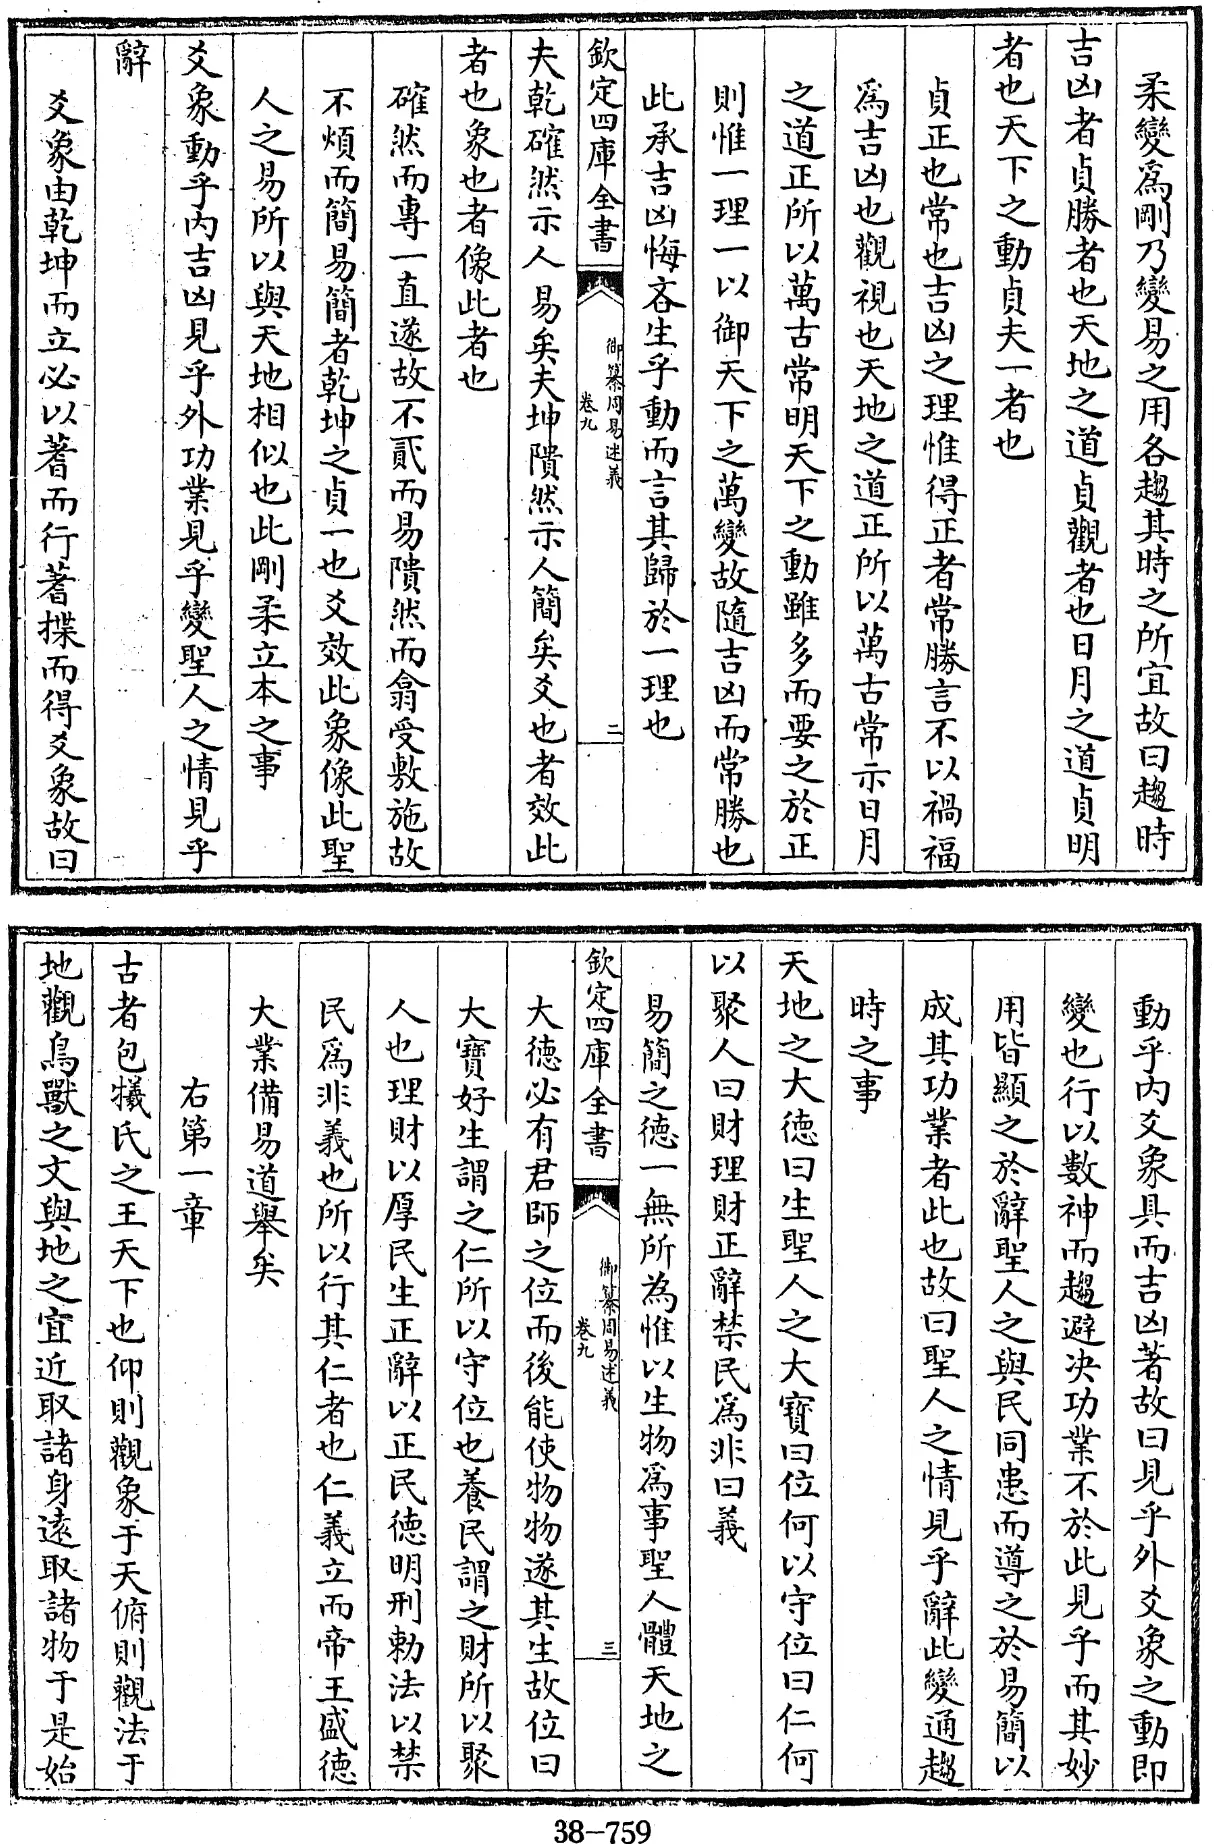 柔變爲剛乃變易之用各趨其時之所宜故曰趨時
吉凶者貞勝者也天地之道貞觀者也日月之道貞明
者也天下之動貞夫一者也
貞正也常也吉凶之理惟得正者常勝言不以禍福
爲吉凶也觀視也天地之道正所以萬古常示日月
之道正所以萬古常明天下之動雖多而要之於正
則惟一理一以御天下之萬變故隨吉凶而常勝也
此承吉凶悔吝生乎動而言其歸於一理也
欽定四庫全書
御纂周易述義
卷九
二
夫乾確然示人易矣夫坤隤然示人簡矣爻也者效此
者也象也者像此者也
確然而專一直遂故不貳而易隤然而翕受敷施故
不煩而簡易簡者乾坤之貞一也爻效此象像此聖
人之易所以與天地相似也此剛柔立本之事
爻象動乎內吉凶見乎外功業見乎變聖人之情見乎
辭
爻象由乾坤而立必以蓍而行蓍揲而得爻象故曰
動乎內爻象具而吉凶著故曰見乎外爻象之動即
變也行以數神而趨避决功業不於此見乎而其妙
用皆顯之於辭聖人之與民同患而導之於易簡以
成其功業者此也故曰聖人之情見乎辭此變通趨
時之事
天地之大德曰生聖人之大寶曰位何以守位曰仁何
以聚人曰財理財正辭禁民爲非曰義
易簡之德一無所為惟以生物爲事聖人體天地之
欽定四庫全書
御纂周易述義
卷九
三
大德必有君師之位而後能使物物遂其生故位曰
大寶好生謂之仁所以守位也養民謂之財所以聚
人也理財以厚民生正辭以正民德明刑勅法以禁
民爲非義也所以行其仁者也仁義立而帝王盛德
大業備易道舉矣
右第一章
古者包犧氏之王天下也仰則觀象于天俯則觀法于
地觀鳥獸之文與地之宜近取諸身遠取諸物于是始
38-759